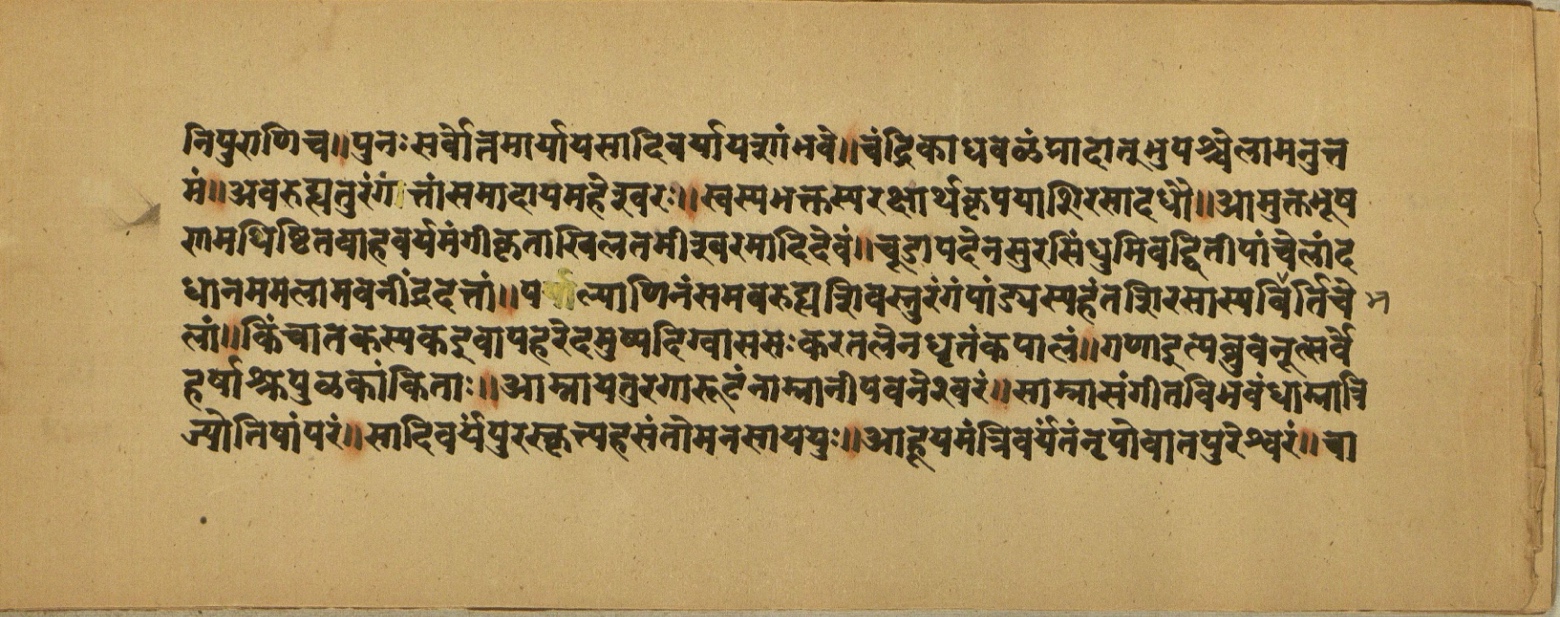 निपुराणिच॥पुनःसर्वोत्तमार्यायसादिवर्यायशांभवे॥चंद्रिकाधवळंप्रादान्नृभुपश्चैलामनुत्त
मं॥अवरुह्यतुरंगात्तांसमादायमहेश्वरः॥स्वस्यभक्तस्यरक्षार्थंकृपयाशिरसादधौ॥आमुक्तभूष
णमधिष्टितवाहवर्यमंगीकृताखिलतमीश्वरमादिदेवं॥चूडापदेनसुरसिंधुमिवद्द्वितीपांचेलांद
धानममलामवनींद्रदत्तां॥पर्याल्याणिनंसमवरुह्यशिवस्तुरंगंपांड्यस्यहंतशिरसास्यबिर्तिचे भ
लां॥किंचातकस्यकइवापहरेदमुष्यदिग्वाससःकरतलेनधृतंकपालं॥गणाइत्यब्रुवन्नूत्सर्वे
हर्षाश्रुपुळकांकिताः॥आम्नायतुरगारूढंनाम्नानीपवनेश्वरं॥साम्नासंगीतविभवंधाम्नात्रि
ज्योतिषांपरं॥सादिवर्यंपुरस्कृत्यहसंतोमनसाययुः॥आहूयमंत्रिवर्यंतंनृपोवातपुरेश्वरं॥वा